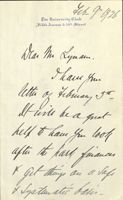 Feb. 9th 1926
The University Club
Fifth Avenue & 54th Street
Dear Mr Lyman.
I have your
letter of February 3rd.
It will be a great
help to have you look
after the fund finances
& get things on a safe
& systematic basis.